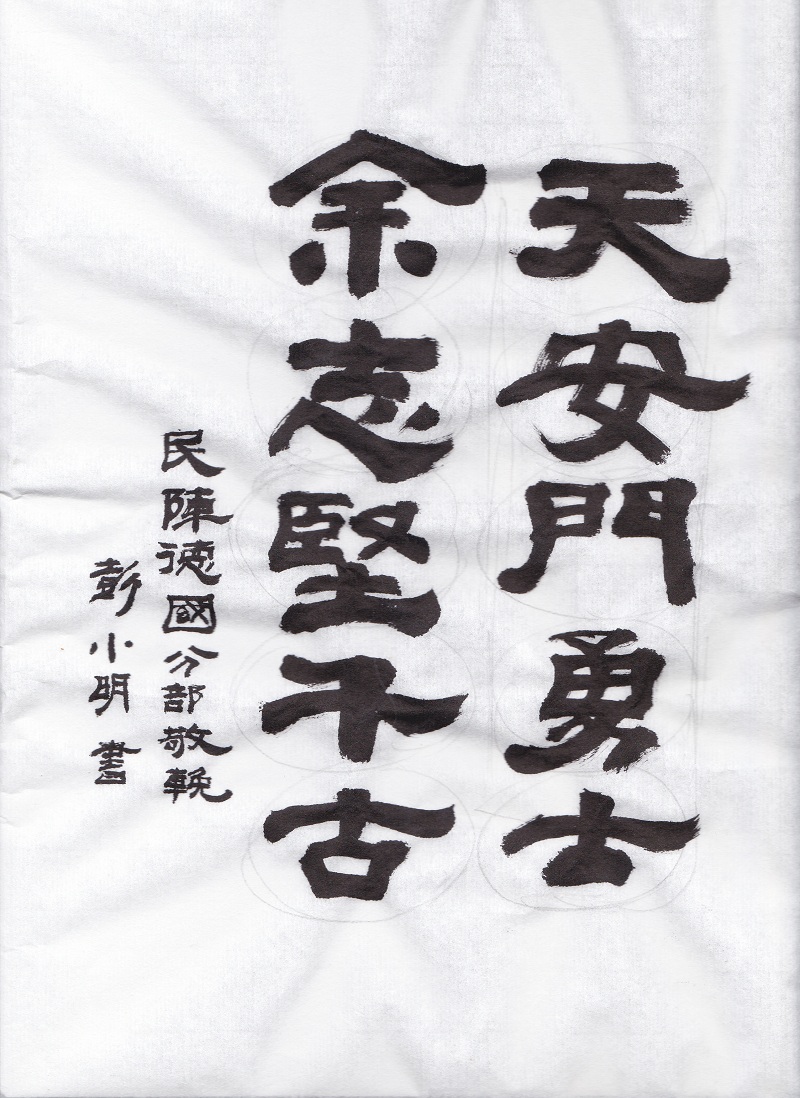 天安門勇士
余志堅千古
民陣德國分部敬輓
彭小明 書